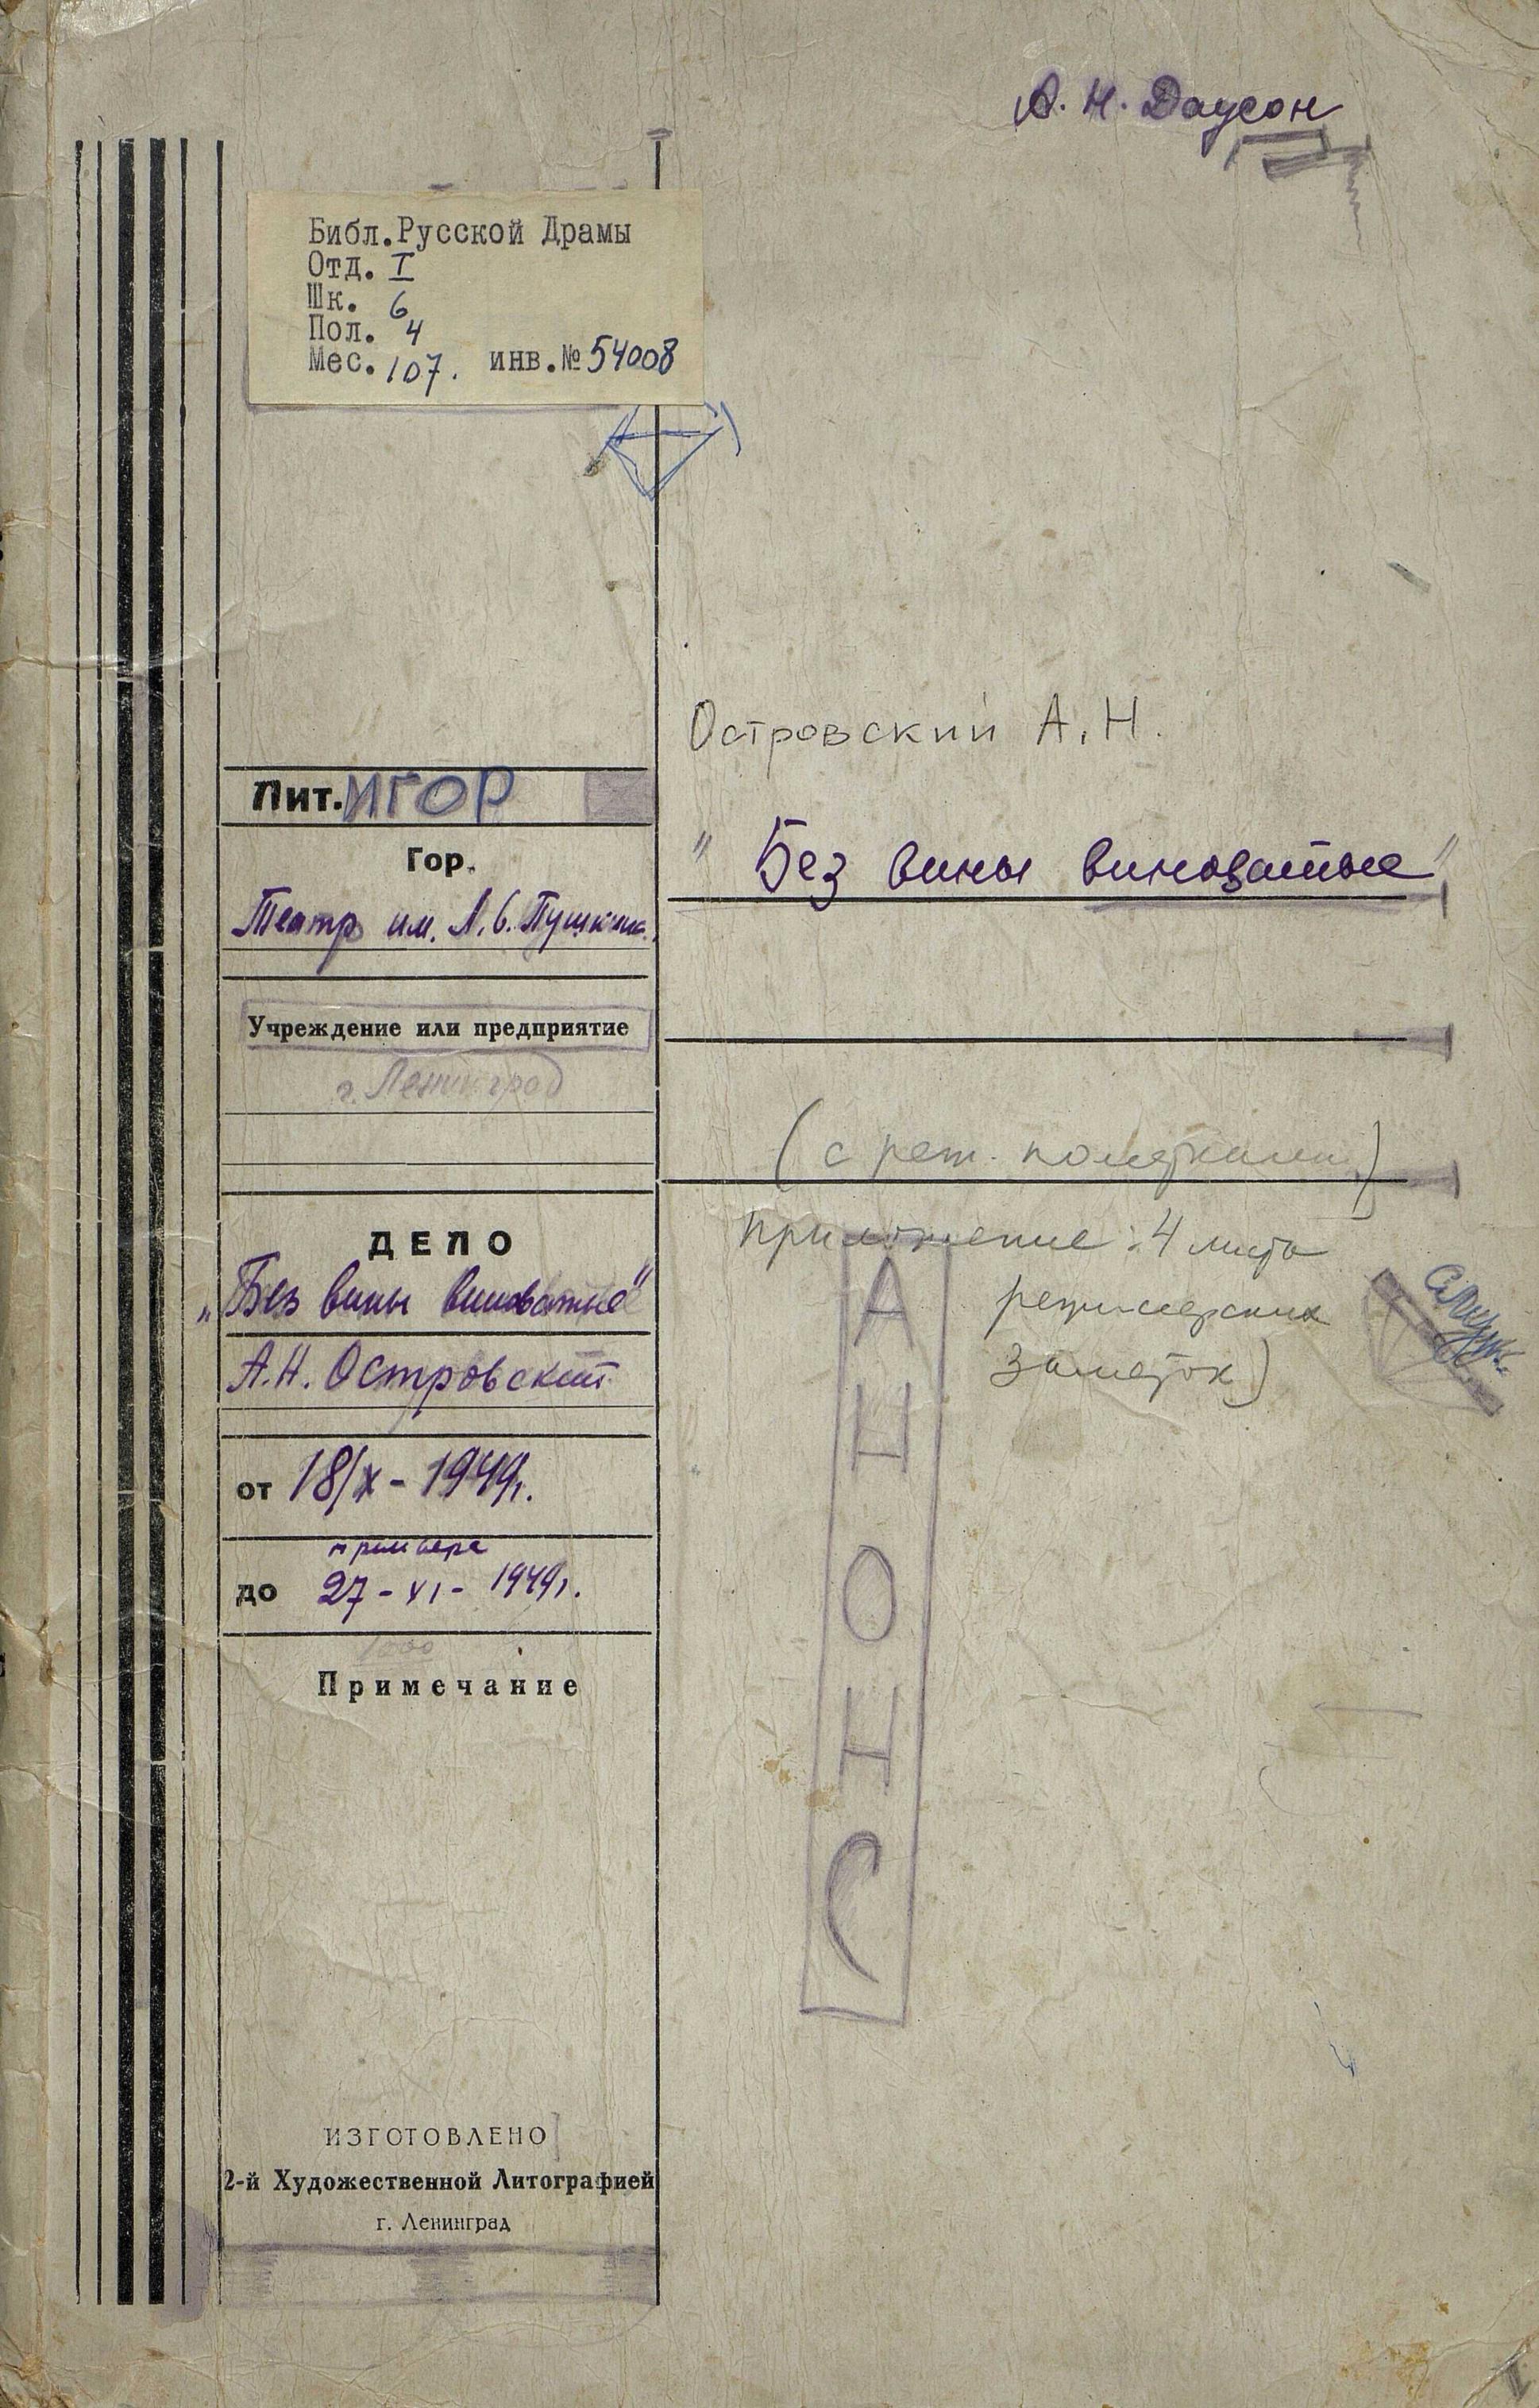 А. Н. Даусон
Библ.Русской Драмы
Отд. I
Шк. 6
Пол. 4
Мес. 107. инв.№ 54008
Лит. ИГОР
Гор.
Театр им. А.С. Пушкина.
Учреждение или предприятие
г. Ленинград
ДЕЛО
„Без вины виноватые"
А.Н. Островский
от 18/X - 1949г.
премьера
до 27 - XI - 1949г.
Примечание
ИЗГОТОВЛЕНО
2-й Художественной Литографией
г. Ленинград
Островский А.Н.
"Без вины виноватые"
(с реж. пометками)
приложение: 4 листа
режиссерских
заметок)